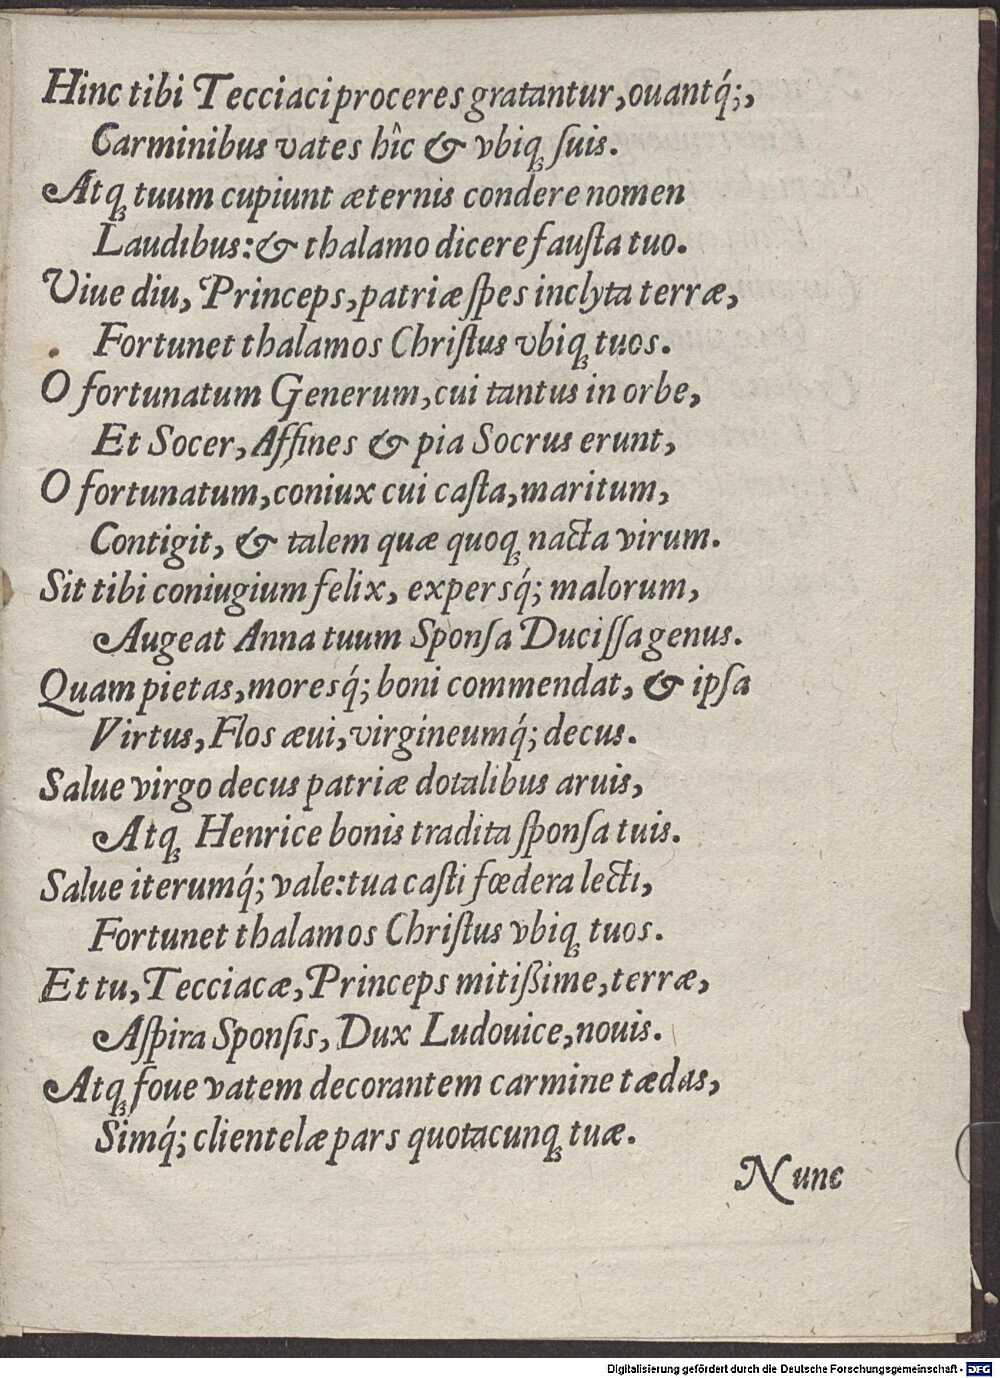 Hinc tibi Tecciaci proceres gratantur, ouantq́;,
Carminibus vates hîc & vbiqꝫ ſuis.
Atqꝫ tuum cupiunt æternis condere nomen
Laudibus: & thalamo dicere fauſta tuo.
Viue diu, Princeps, patriæ ſpes inclyta terræ,
Fortunet thalamos Chriſtus vbiqꝫ tuos.
O fortunatum Generum, cui tantus in orbe,
Et Socer, Affines & pia Socrus erunt,
O fortunatum, coniux cui caſta, maritum,
Contigit, & talem quæ quoqꝫ nacta virum.
Sit tibi coniugium felix, expersq́; malorum,
Augeat Anna tuum Sponſa Duciſſa genus.
Quam pietas, moresq́; boni commendat, & ipſa
Virtus, Flos æui, virgineumq́; decus.
Salue virgo decus patriæ dotalibus aruis,
Atqꝫ Henrice bonis tradita ſponſa tuis.
Salue iterumq́; vale: tua caſti fœdera lecti,
Fortunet thalamos Chriſtus vbiqꝫ tuos.
Et tu, Tecciacæ, Princeps mitißime, terræ,
Aſpira Sponſis, Dux Ludouice, nouis.
Atqꝫ foue vatem decorantem carmine tædas,
Simq́; clientelæ pars quotacunqꝫ tuæ.
Nunc
Digitalisierung gefördert durch die Deutsche Forschungsgemeinschaft - DFG